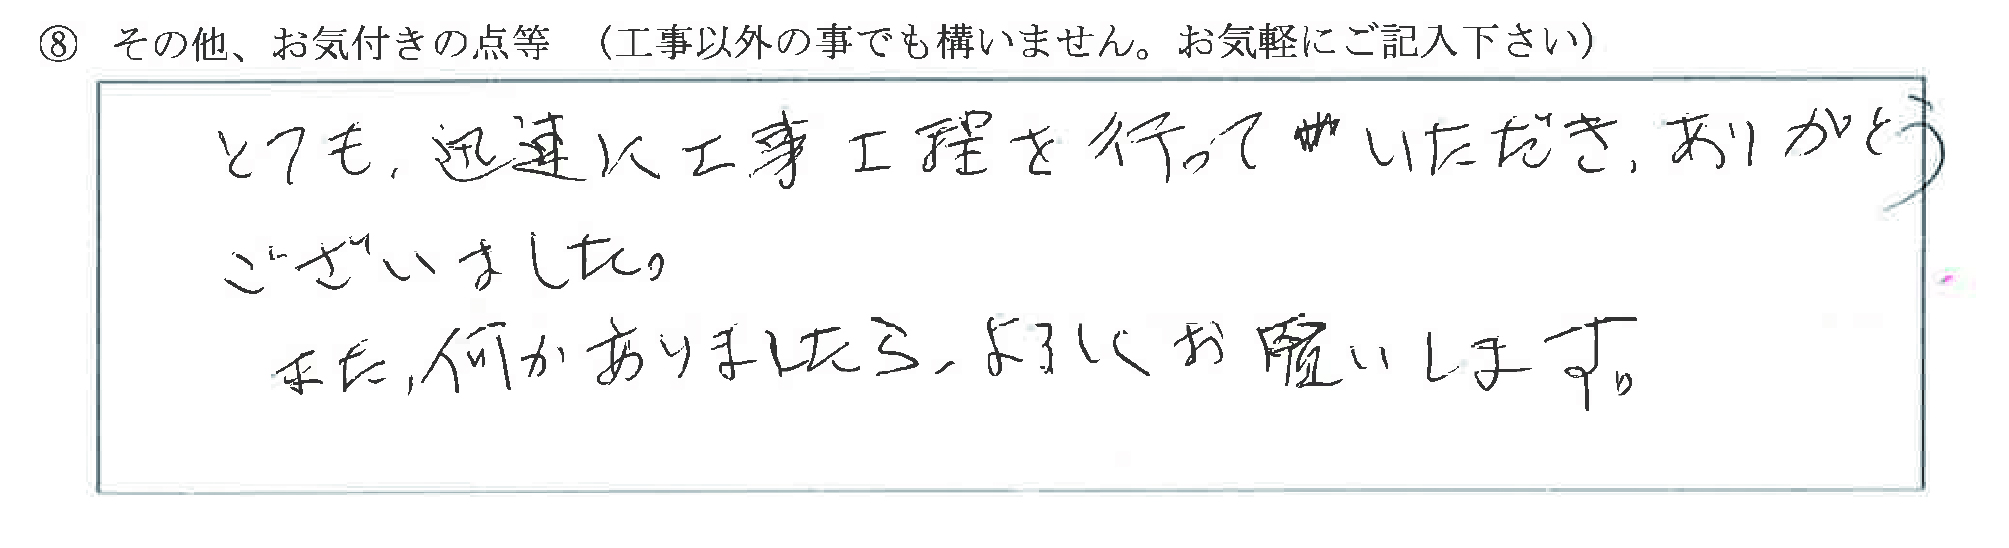 ⑧ その他、お気付きの点等 (工事以外の事でも構いません。お気軽にご記入下さい)
とても、迅速に工事工程を行っていただき、ありがとう
ございました。
また、何かありましたら、よろしくお願いします。